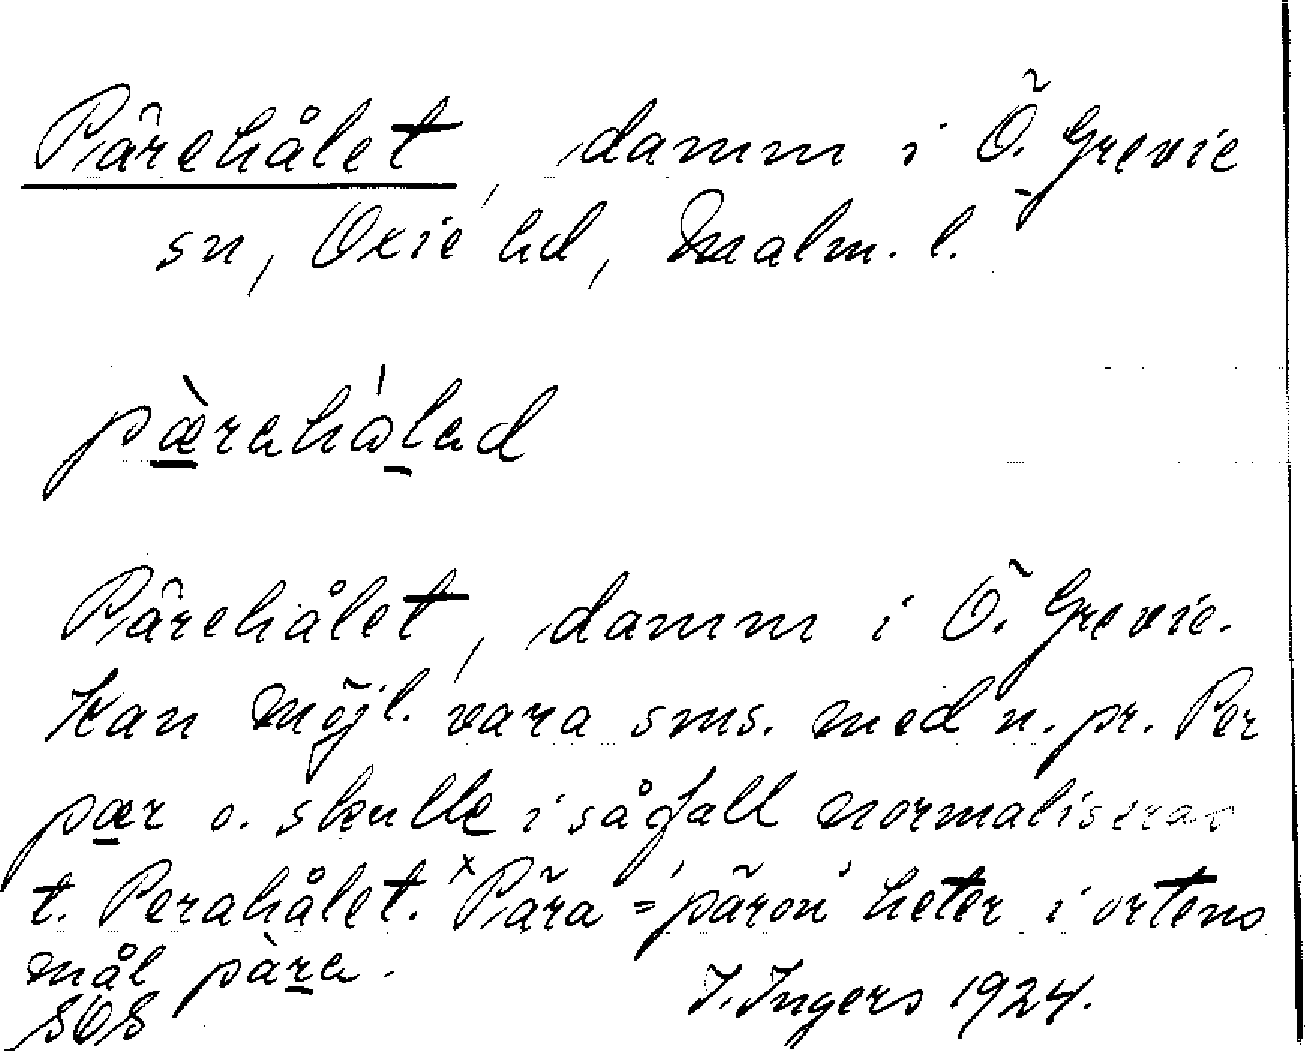 Pärehålet, damm i Ö. Grevie
sn, Oxie hd, Malm. l.
pæ̀rəhålad
Pärehålet, damm i Ö. Grevie.
Kan möjl. vara sms. med n. pr. Per
pær o. skulle i såfall normaliseras
t. Perahålet. ˣPära = 'päron' heter i ortens
mål pàra.
SOS J. Ingers 1924.